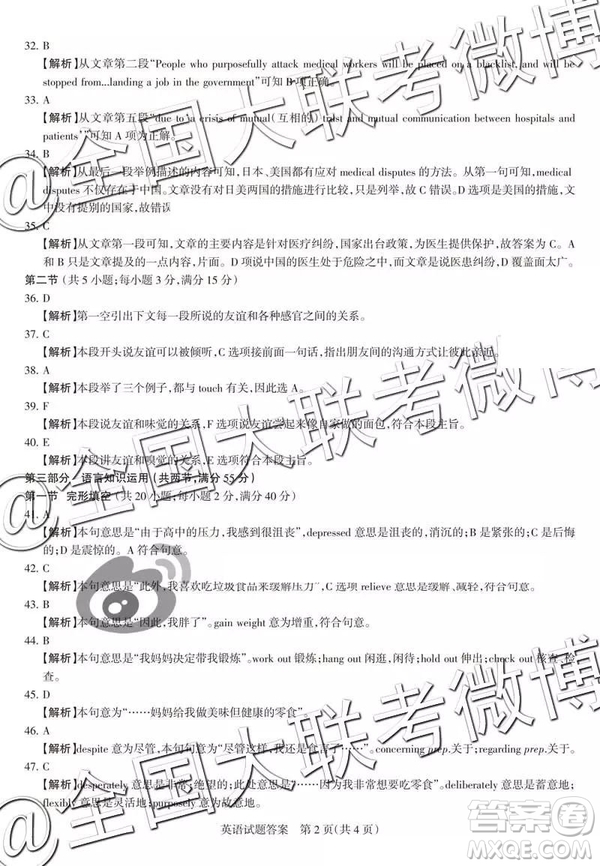 32. B
【解析】从文章第二段“People who purposefully attack medical workers will be placed on a blacklist, and will be
stopped from...landing a job in the government”可知 B 项正确。
33. A
【解析】从文章第五段“due to a crisis of mutual(互相的) trust and mutual communication between hospitals and
patients”可知 A 项为正解。
34. B
【解析】从最后一段举例描述的内容可知,日本、美国都有应对 medical disputes 的方法。从第一句可知,medical
disputes 不仅存在于中国。文章没有对日美两国的措施进行比较,故 C 错误。D 选项是美国的措施,文
中没有提到别的国家,故错误
35. C
【解析】从文章第一段可知,文章主要内容是针对医疗纠纷,国家出台政策,为医生提供保护,故答案为 C。A
和 B 只是文章提及的一点内容,片面。D 项说中国的医生处于危险之中,而文章是讲医疗纠纷,范围太广。
第二节 (共 5 小题;每小题 3 分,满分 15 分)
36. D
【解析】第一空引出下文每一段所说的友谊和各种感官之间的关系。
37. C
【解析】本段开头说友谊可以被听到,C 选项指出朋友间的沟通方式让彼此亲近。
38. A
【解析】本段举了三个例子,都与 touch 有关,因此选 A。
39. F
【解析】本段说友谊和味觉的关系,F 选项说友谊尝起来像自家做的面包,符合本段主旨。
40. E
【解析】本段讲友谊和嗅觉的关系,E 选项符合本段主旨。
第三部分 语言知识运用(共两节,满分 55 分)
第一节 完形填空(共 20 小题;每小题 2 分,满分 40 分)
41. A
【解析】本句意思是“由于高中的压力,我感到很沮丧”,depressed 意思是沮丧的,消沉的;B 是紧张的;C 是后悔
的;D 是震惊的。A 符合句意。
42. C
【解析】本句意思是“此外,我喜欢吃垃圾食品来缓解压力”,C 选项 relieve 意思是缓解,符合句意。
43. B
【解析】本句意思是“因此,我胖了”。gain weight 意为增重,符合句意。
44. B
【解析】本句意思是“我妈妈决定带我锻炼”。work out 锻炼;hang out 闲逛,闲待;check out 核查,检
查。
45. D
【解析】本句意为“……妈妈给我做美味但健康的零食”。
46. A
【解析】despite 意为尽管,本句意为“尽管这样,我还是……”。concerning prep.关于;regarding prep.关于。
47. C
【解析】desperately 意思是非常;绝望的;此处意思是“因为我非常想要吃零食”。deliberately 意思是蓄意地;
flexibly 意思是灵活地;purposely 意为故意地。
英语试题答案 第 2 页(共 4 页)
@全国大联考微博
@全国大联考微博